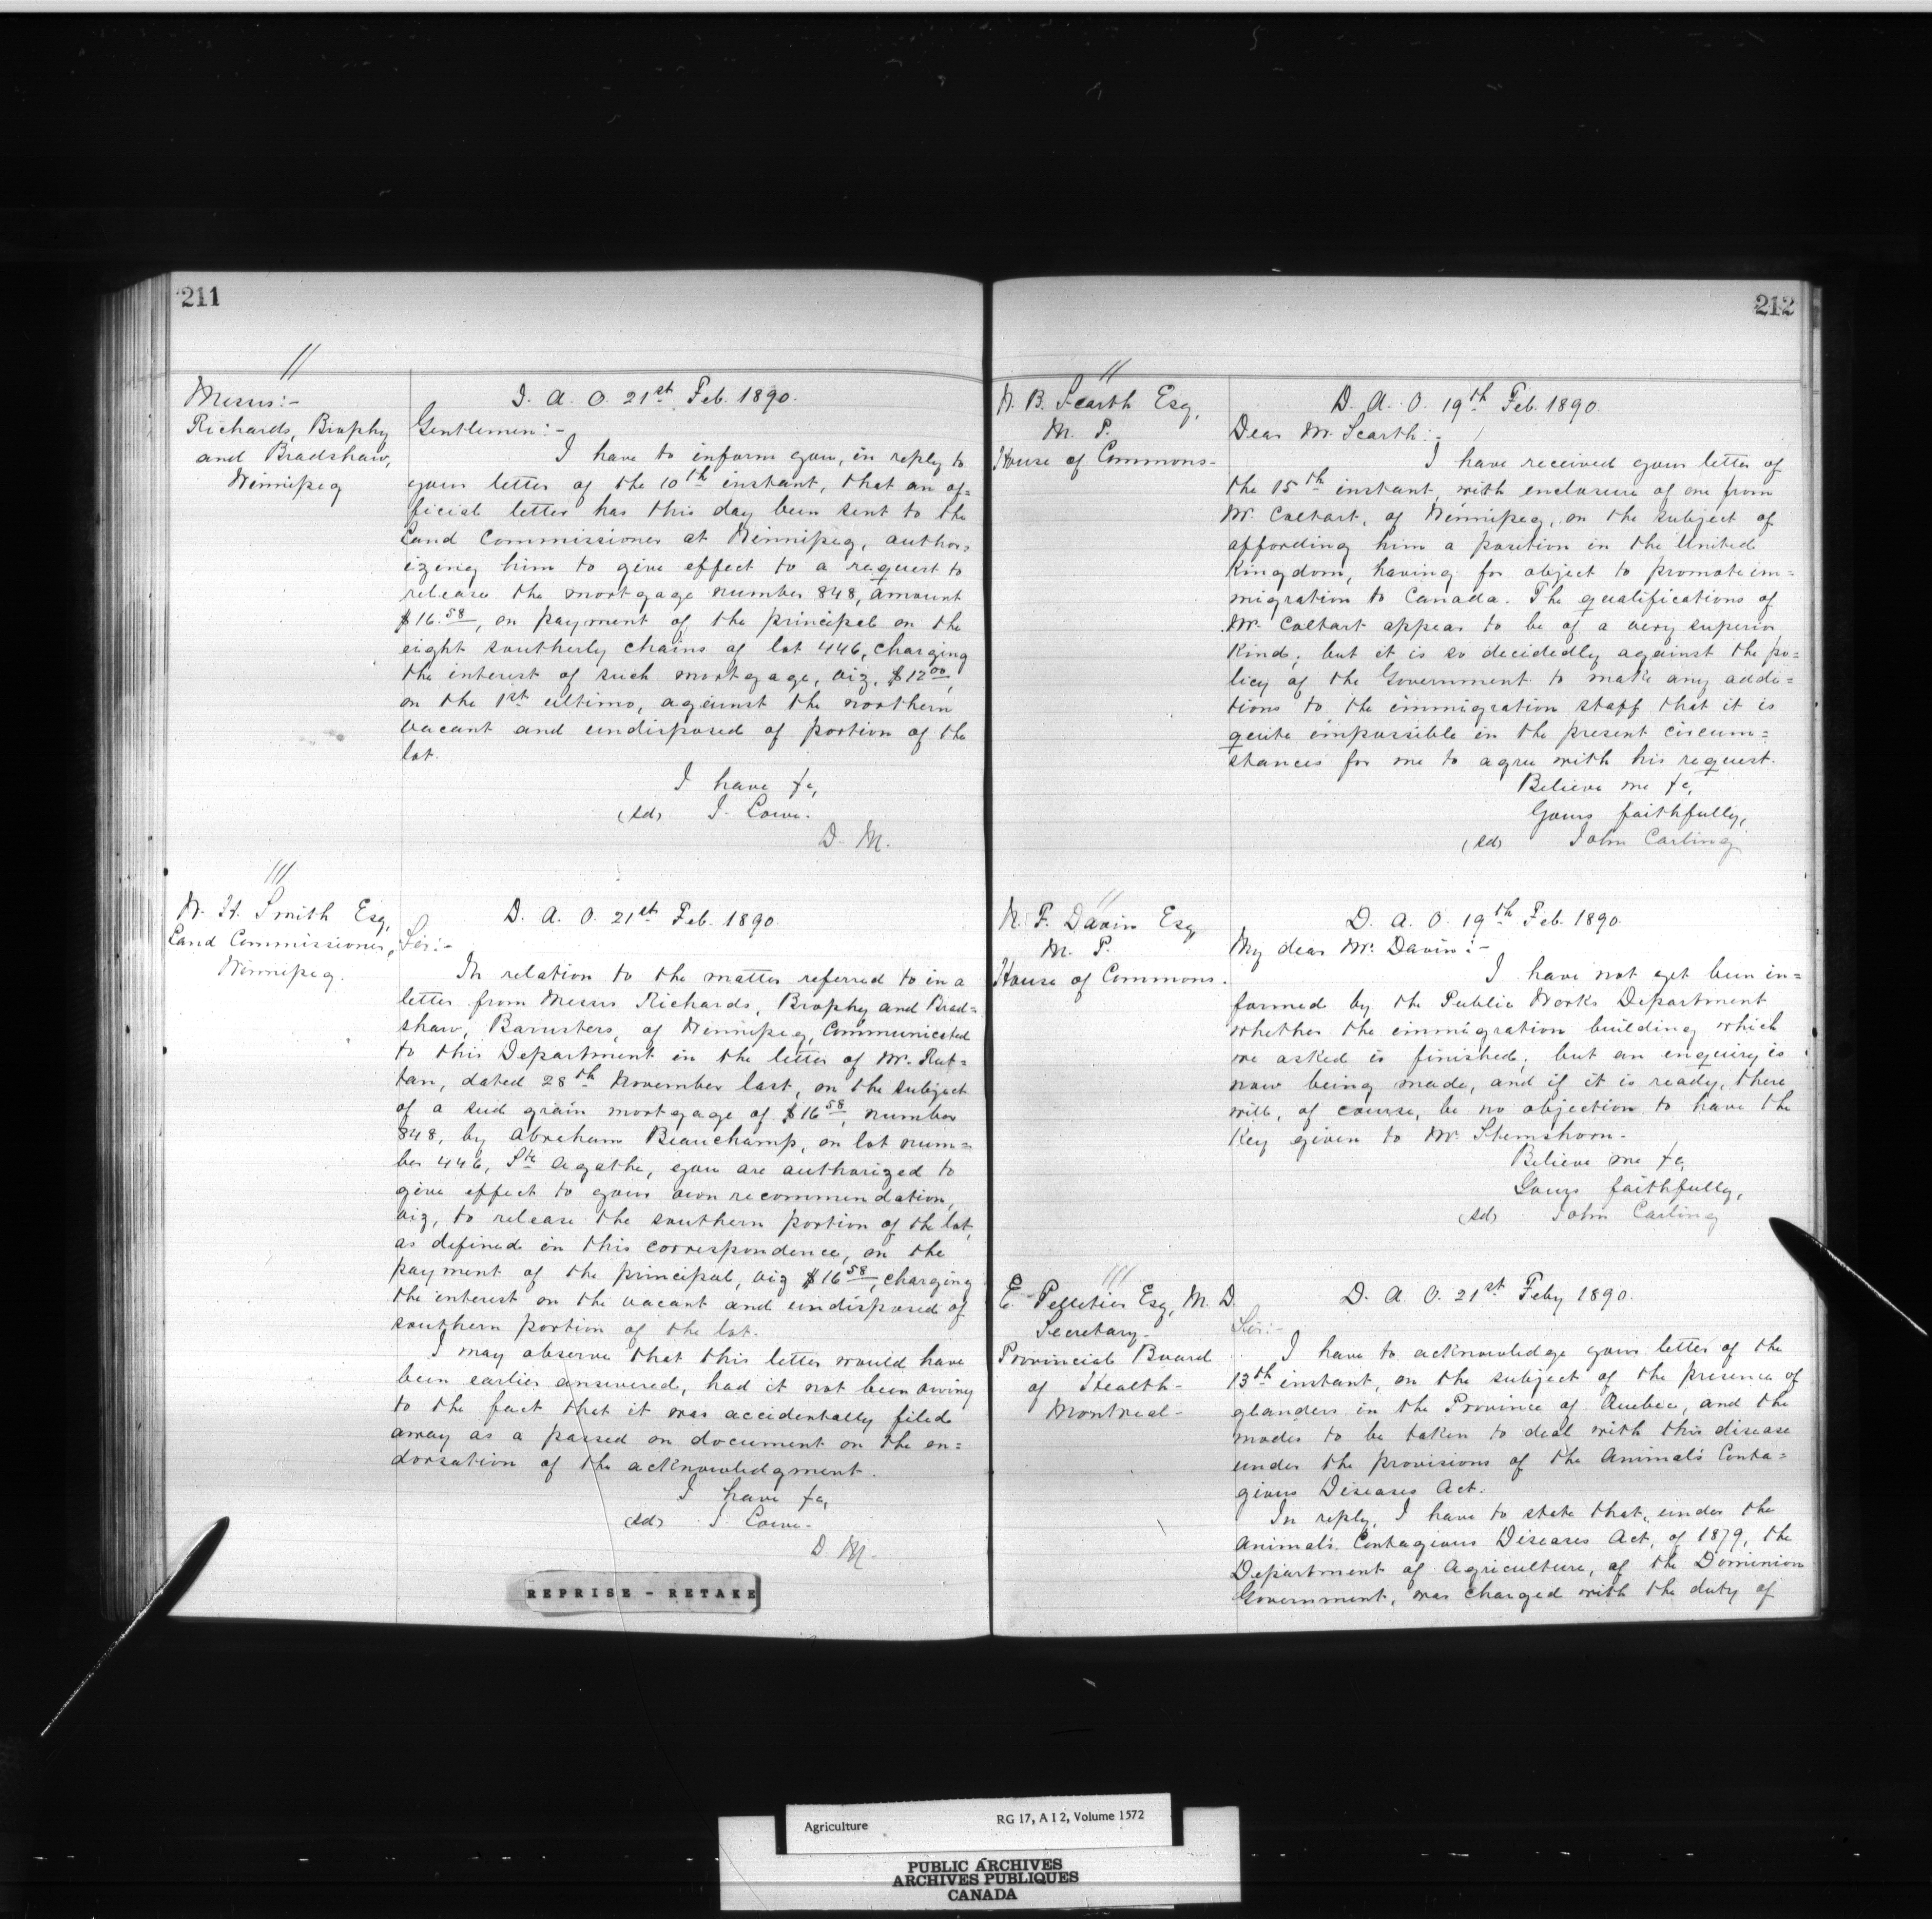 211
//
Messrs:-
Richards, Brophy
and Bradshaw,
Winnipeg
D. A. O. 21st Feb. 1890.
Gentlemen:-
I have to inform you, in reply to
your letter of the 10th instant, that an of=
ficial letter has this day been sent to the
Land Commissioner at Winnipeg, author=
izing him to give effect to a request to
release the mortgage number 848, amount
$16.58, on payment of the principal on the
eight southerly chains of lot 446, charging
the interest of such mortgage, viz. $12.00,
on the 1st ultimo, against the northern
vacant and undisposed of portion of the
lot.
I have &c,
(sd) J. Lowe.
D. M.
///
W. H. Smith Esq,
Land Commissioner,
Winnipeg.
D. A. O. 21st Feb. 1890.
Sir:-
In relation to the matter referred to in a
letter from Messrs Richards, Brophy and Brad=
shaw, Barristers, of Winnipeg, Communicated
to this Department in the letter of Mr. Rut=
tan, dated 28th November last, on the subject
of a seed grain mortgage of $16.58, number
848, by Abraham Beauchamp, on lot num=
ber 446, Ste Agathe, you are authorized to
give effect to your own recommendation,
viz, to release the southern portion of the lot,
as defined in this correspondence, on the
payment of the principal, viz $16.58, charging
the interest on the vacant and undisposed of
southern portion of the lot.
I may observe that this letter would have
been earlier answered, had it not been owing
to the fact that it was accidentally filed
away as a passed on document on the en=
dorsation of the acknowledgment.
I have &c,
(sd) J Lowe.
D. M.
REPRISE - RETAKE
212
//
W. B. Scarth Esq,
M. P.
House of Commons-
D. A. O. 19th Feb. 1890.
Dear Mr. Scarth:-
I have received your letter of
the 15th instant, with enclosure of one from
Mr. Coltart, of Winnipeg, on the subject of
affording him a position in the United
Kingdom, having for object to promote im=
migration to Canada. The qualifications of
Mr. Coltart appear to be of a very superior
kind; but it is so decidedly against the po=
licy of the Government to make any addi=
tions to the immigration staff that it is
quite impossible in the present circum=
stances for me to agree with his request.
Believe me &c,
Yours faithfully,
(sd) John Carling
//
N. F. Davin Esq
M. P.
House of Commons.
D. A. O. 19th Feb. 1890.
My dear Mr. Davin:-
I have not yet been in=
formed by the Public Works Department
whether the immigration building which
we asked is finished; but an enquiry is
now being made, and if it is ready, there
will, of course, be no objection to have the
key given to Mr. Stemshorn.
Believe me &c,
Yours faithfully,
(sd) John Carling
///
E. Pelletier Esq, M. D.
Secretary-
Provincial Board
of Health-
Montreal-
D. A. O. 21st Feby 1890.
Sir:-
I have to acknowledge your letter of the
13th instant, on the subject of the presence of
glanders in the Province of Quebec, and the
modes to be taken to deal with this disease
under the provisions of the Animals Conta=
gious Diseases Act.
In reply, I have to state that, under the
Animals. Contagious Diseases Act, of 1879, the
Department of Agriculture, of the Dominion
Government, was charged with the duty of
Agriculture RG 17, A I 2, Volume 1572
PUBLIC ARCHIVES
ARCHIVES PUBLIQUES
CANADA